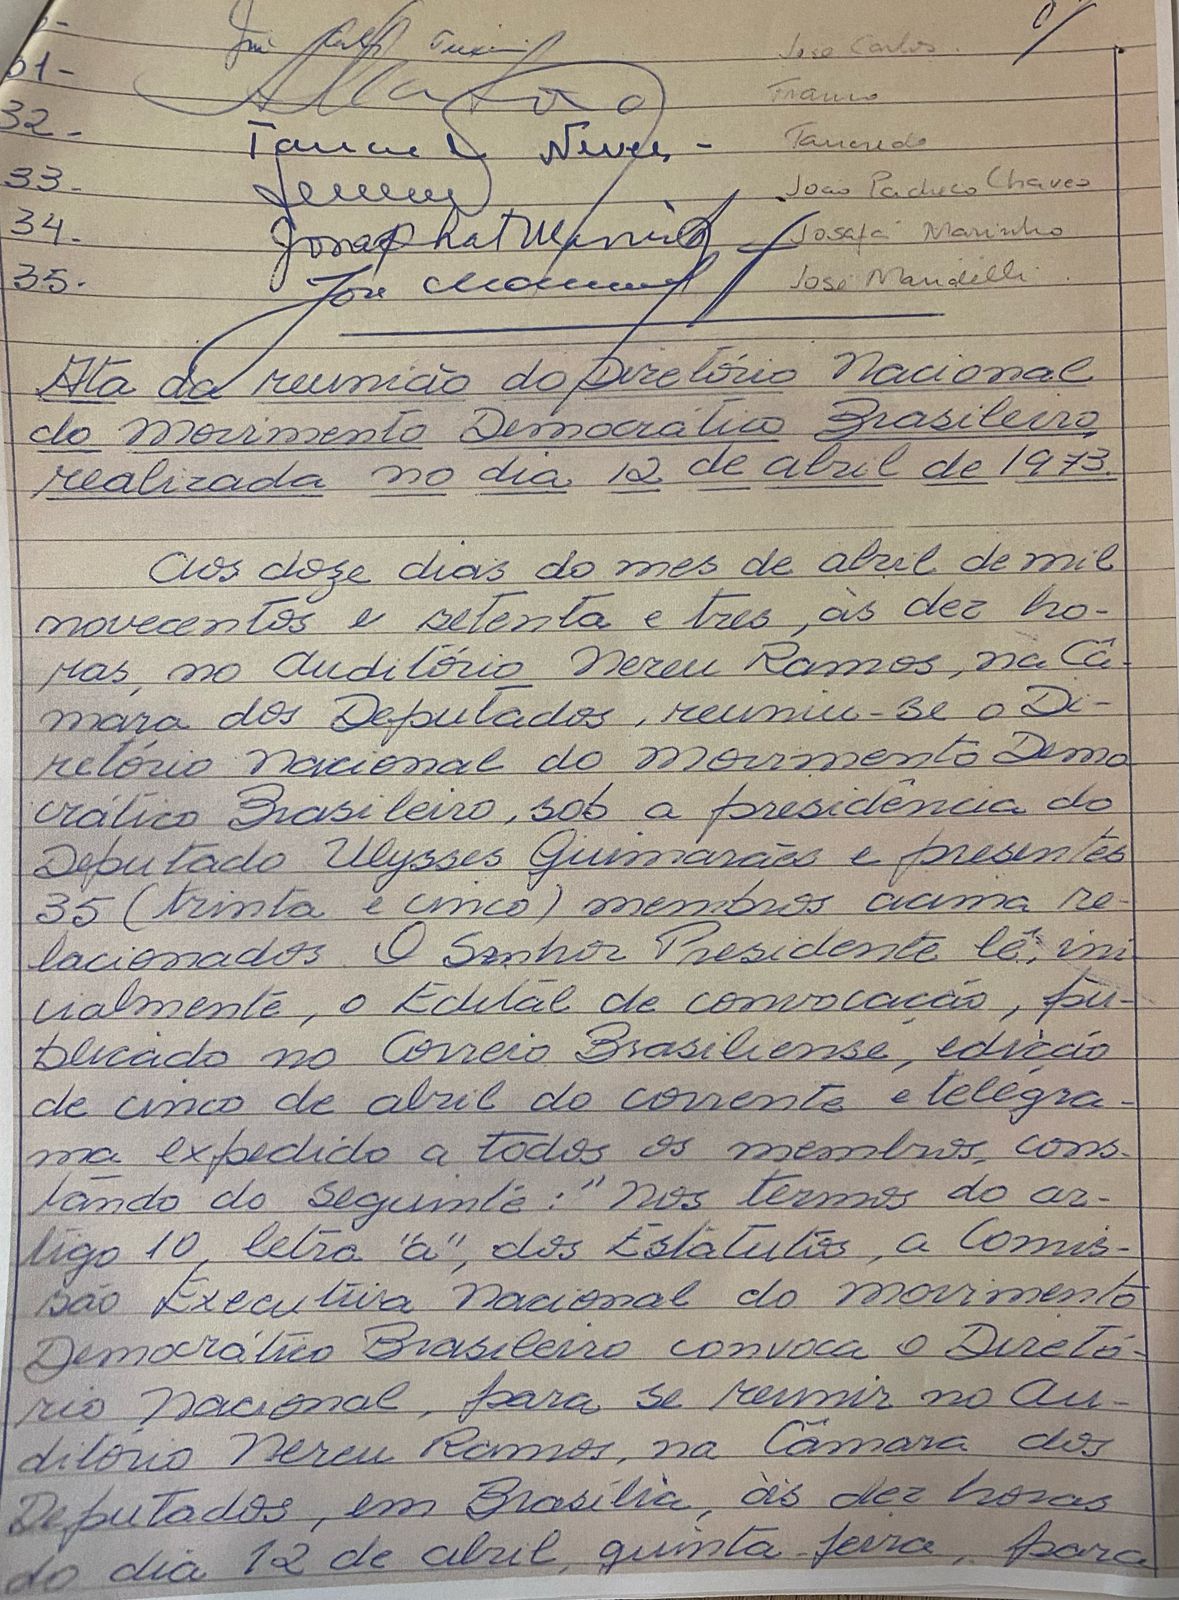 José Carlos
31-
Franco
32- Tancredo Neves - Tancredo
33- João Pacheco Chaves
34- Josaphat Marinho - Josafá Marinho
35- José José Mandelli
Ata da reunião do Diretório Nacional
do Movimento Democrático Brasileiro,
realizada no dia 12 de abril de 1973.
Aos doze dias do mes de abril de mil
novecentos e setenta e tres, às dez ho-
ras, no Auditório Nereu Ramos, na Câ-
mara dos Deputados, reuniu-se o Di-
retório Nacional do Movimento Demo
crático Brasileiro, sob a presidência do
Deputado Ulysses Guimarães e presentes
35 (trinta e cinco) membros acima re-
lacionados. O Senhor Presidente lê, ini
cialmente, o Edital de convocação, pu-
blicado no Correio Brasiliense, edição
de cinco de abril do corrente e telegra-
ma expedido a todos os membros, cons-
tando do seguinte: "Nos termos do ar-
tigo 10, letra "a", dos Estatutos, a Comis-
são Executiva Nacional do Movimento
Democrático Brasileiro convoca o Diretó-
rio Nacional, para se reunir no Au-
ditório Nereu Ramos, na Câmara dos
Deputados, em Brasília, às dez horas
do dia 12 de abril, quinta-feira, para